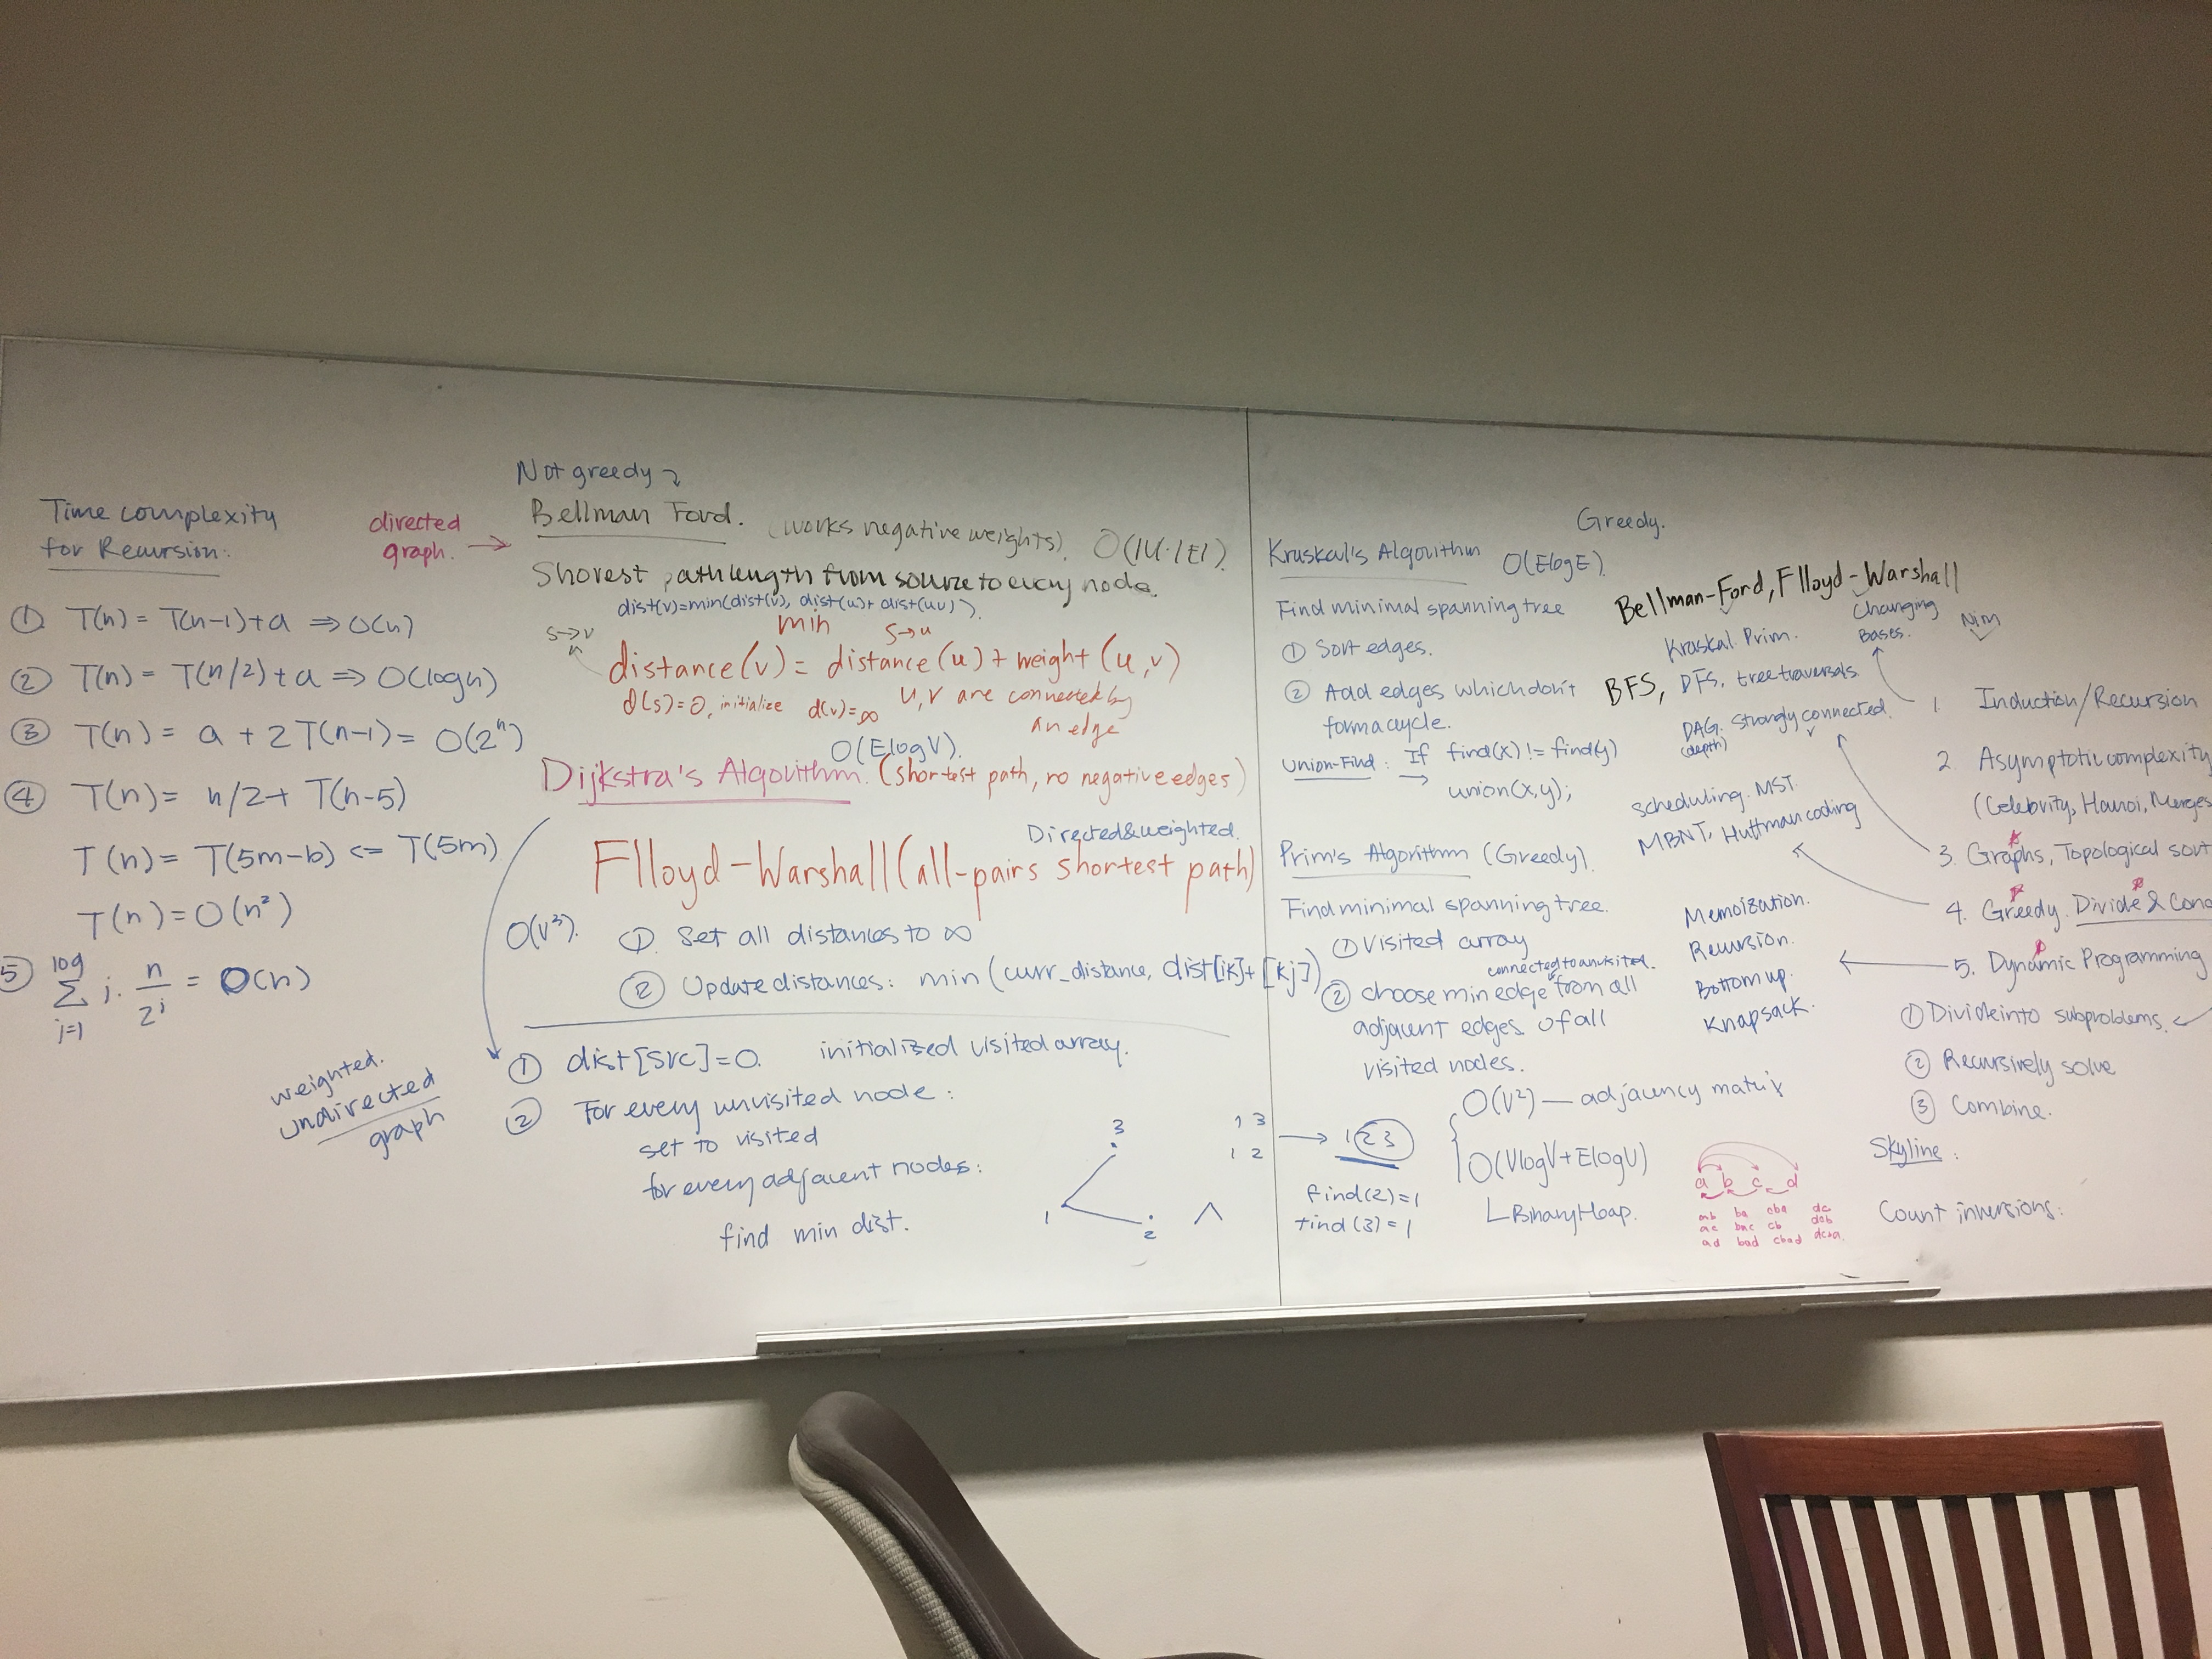 Time complexity
for Recursion:
① T(n) = T(n-1)+a ⇒ O(n)
② T(n) = T(n/2)+a ⇒ O(logn)
③ T(n) = a + 2T(n-1) = O(2ⁿ)
④ T(n) = n/2 + T(n-5)
T(n) = T(5m-b) <= T(5m)
T(n) = O(n²)
⑤ log Σ j=1 j. n/2ʲ = O(n)
weighted.
undirected
graph
directed
graph. →
Not greedy
Bellman Ford. (works negative weights) O(|V|·|E|).
Shorest path length from source to every node.
dist(v)=min(dist(v), dist(u)+ dist(uv) ).
min
s→v
s→u
distance(v) = distance(u) + weight(u,v)
d(s)=0, initialize d(v)=∞
u,v are connected by
an edge
O(ElogV).
Dijkstra's Algorithm. (shortest path, no negative edges)
Directed&weighted.
Flloyd-Warshall (all-pairs shortest path)
O(v³).
①. Set all distances to ∞
② Update distances: min (curr_distance, dist[ik]+[kj])
① dist[src]=0. initialized visited array.
② For every unvisited node:
set to visited
for every adjacent nodes:
find min dist.
3
1
2
1 3
1 2
→ 1 2 3
find(2)=1
find(3)=1
Greedy.
Kruskal's Algorithm O(ElogE).
Find minimal spanning tree
① Sort edges.
② Add edges which don't
form a cycle.
Union-Find: If find(x) != find(y)
→ union(x,y);
Prim's Algorithm (Greedy).
Find minimal spanning tree.
① Visited array
connected to unvisited.
② choose min edge from all
adjacent edges of all
visited nodes.
O(V²) — adjacency matrix
O(VlogV+ElogV)
BinaryHeap.
Bellman-Ford, Flloyd-Warshall
Kruskal. Prim.
Changing
Bases.
Nim
BFS, DFS, tree traversals.
DAG. Strongly connected.
(depth)
scheduling. MST.
MBNT, Huffman coding
Memoization.
Recursion.
Bottom up.
Knapsack.
1. Induction/Recursion
2. Asymptotic complexity
(Celebrity, Hanoi, Merges
3. Graphs, Topological sort
4. Greedy. Divide & Conq
5. Dynamic Programming
① Divide into subproblems.
② Recursively solve
③ Combine.
Skyline:
Count inversions:
a b c d
ba cba dc
ac bac cb dcb
ad bad cbad dcba